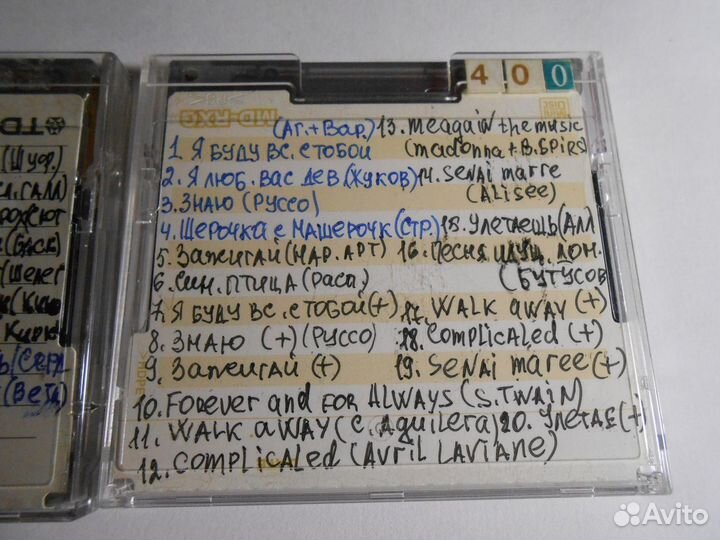 TD
(Шуф.)
(Шелег
(Кирк
(Вета)
400
MD-RXG
(Аг.+Вар.)
1. Я БУДУ ВС. С ТОБОЙ
2. Я ЛЮБ. ВАС ДЕВ (ЖУКОВ)
3. ЗНАЮ (РУССО)
4. ШЕРОЧКА С МАШЕРОЧК (СТР.)
5. ЗАЖИГАЙ (МАР. АРТ)
6. СИН. ПТИЦА (Расп)
7. Я БУДУ ВС. С ТОБОЙ (+)
8. ЗНАЮ (+) (РУССО)
9. ЗАЖИГАЙ (+)
10. FOREVER and FOR ALWAYS (S. TWAIN)
11. WALK aWAY (C. AGUILERA)
12. COMPLICALED (AVRIL LAVIANE)
13. meagain the music
(madonna + B. SPIRS)
14. SENAI marre
(ALISEE)
15. УЛЕТАЕШЬ (АЛЛ
16. ПЕСНЯ ИДУЩ. ДОМ.
(БУТУСОВ
17. WALK aWAY (+)
18. COMPLICALED (+)
19. SENAI MAREE (+)
20. УЛЕТАЕ (+)
Avito